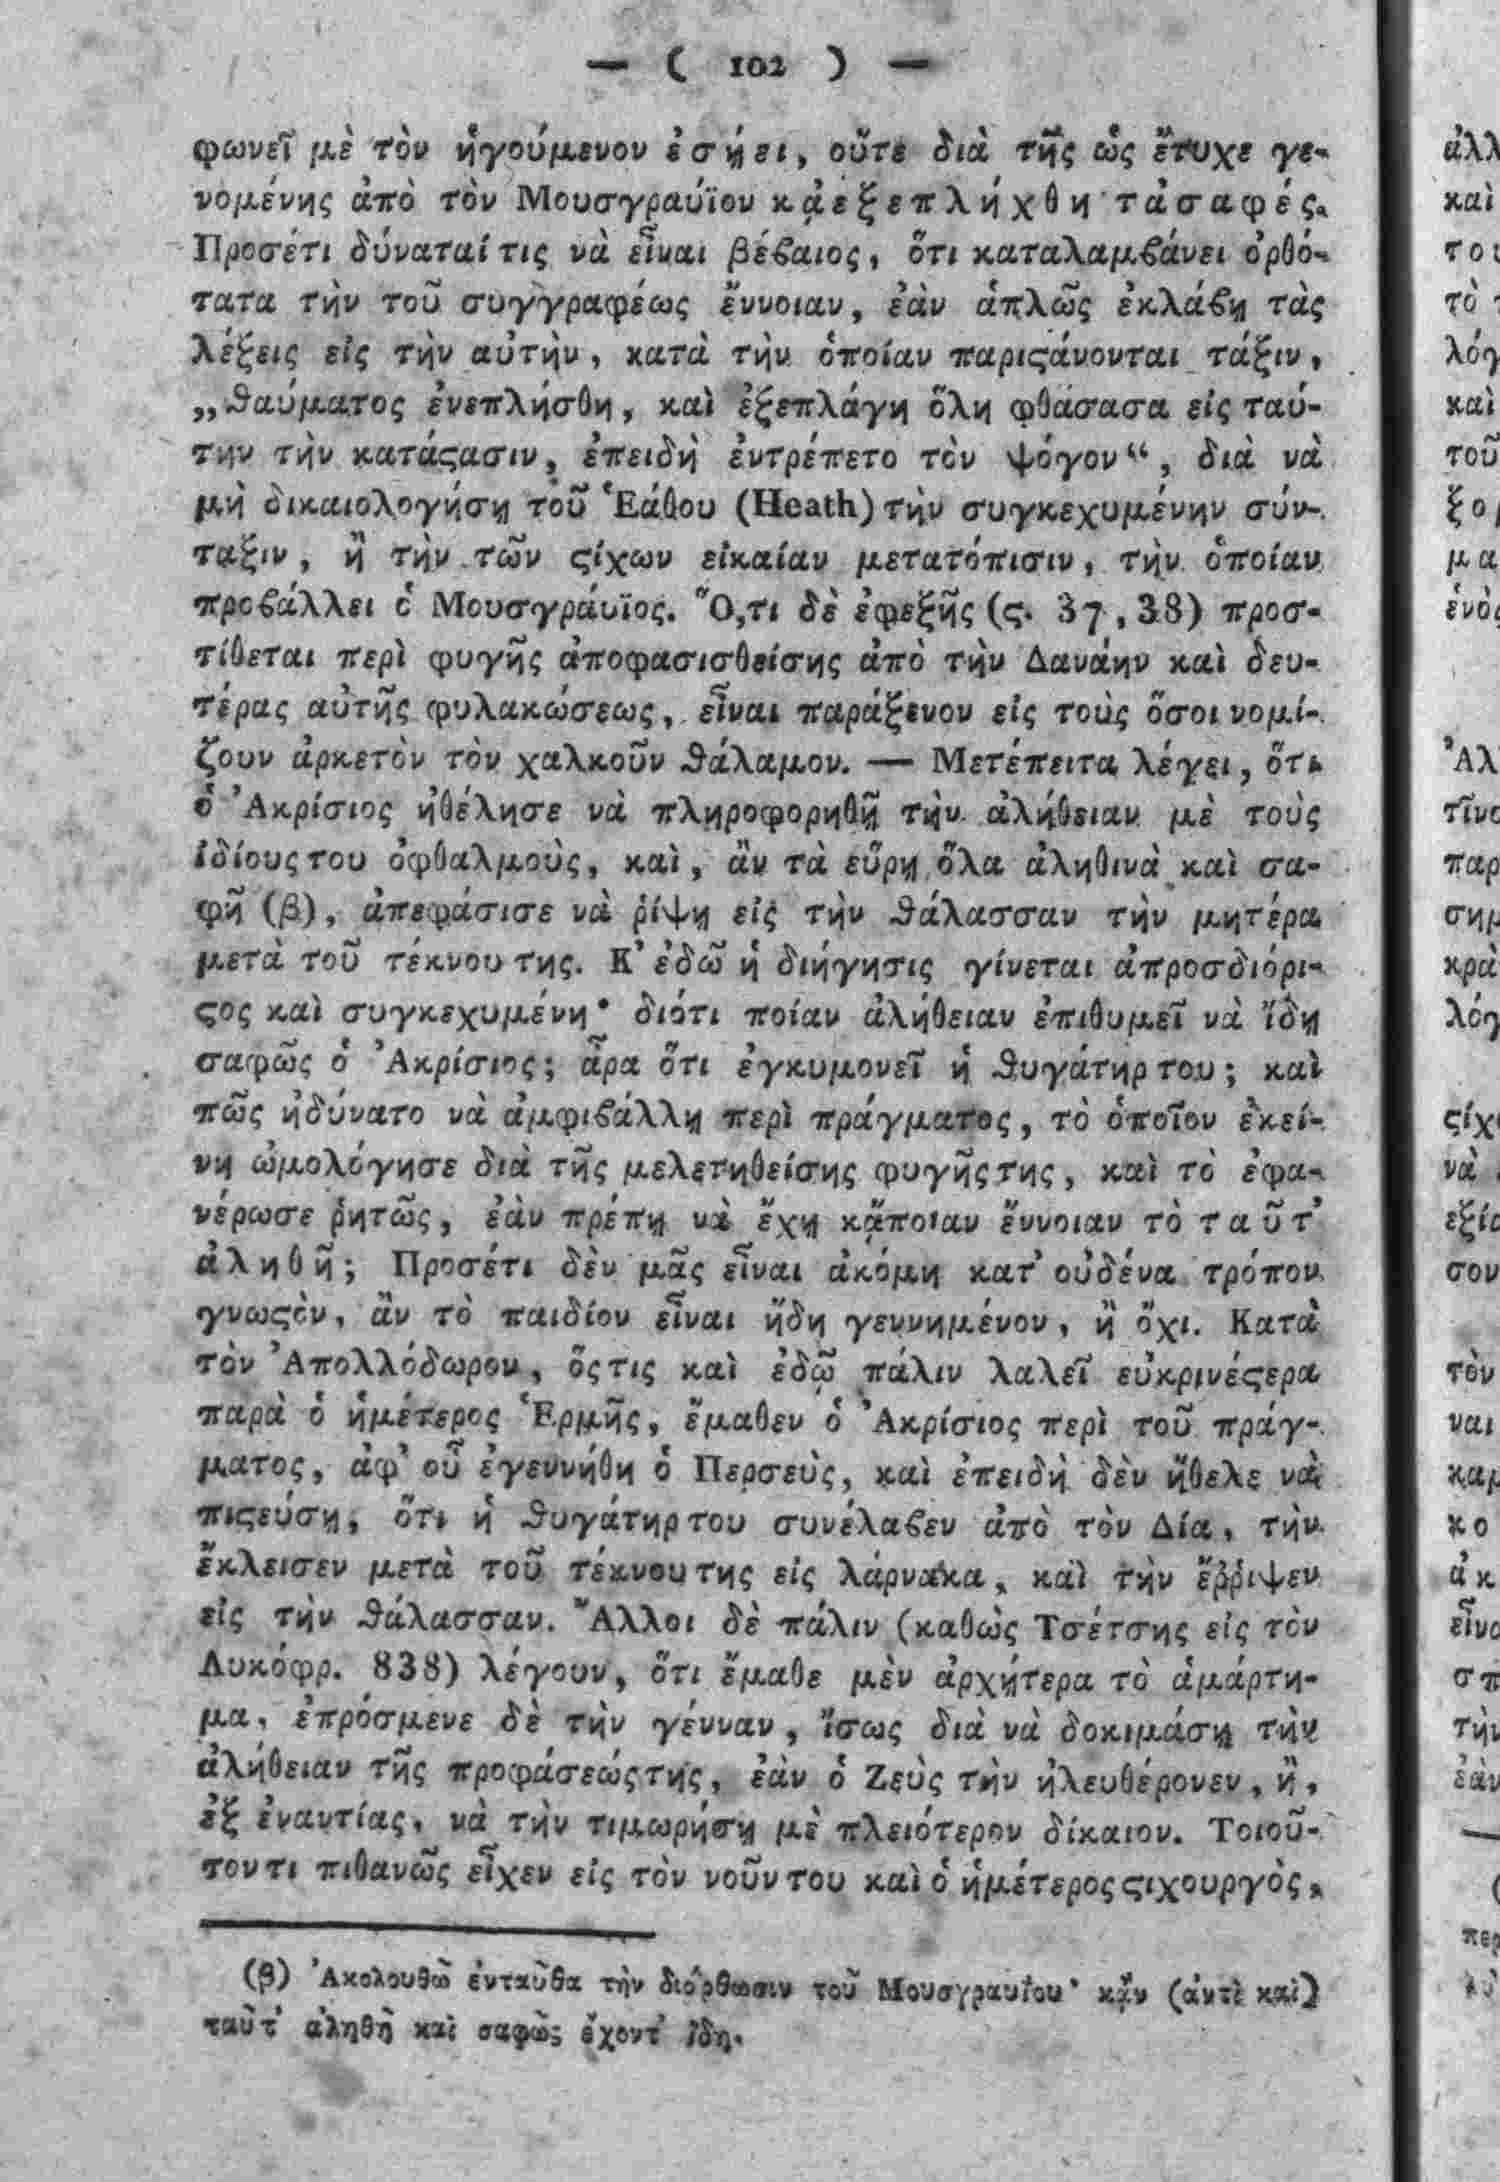 — ( 102 ) —
φωνεῖ μὲ τὸν ἡγούμενον ἐσῄει, οὔτε διὰ τῆς ὡς ἔτυχε γε-
νομένης ἀπὸ τὸν Μουσγραύϊον κᾀεξεπλήχθη τἀσαφές.
Προσέτι δύναταί τις νὰ εἶναι βέϐαιος, ὅτι καταλαμϐάνει ὀρθό-
τατα τὴν τοῦ συγγραφέως ἔννοιαν, ἐὰν ἁπλῶς ἐκλάϐῃ τὰς
λέξεις εἰς τὴν αὐτὴν, κατὰ τὴν ὁποίαν παριϛάνονται τάξιν,
„ϑαύματος ἐνεπλήσθη, καὶ ἐξεπλάγη ὅλη φθάσασα εἰς ταύ-
την τὴν κατάϛασιν, ἐπειδὴ ἐντρέπετο τὸν ψόγον“, διὰ νὰ
μὴ δικαιολογήσῃ τοῦ Ἑάθου (Heath) τὴν συγκεχυμένην σύν-
ταξιν, ἢ τὴν τῶν ϛίχων εἰκαίαν μετατόπισιν, τὴν ὁποίαν
προϐάλλει ὁ Μουσγράυϊος. Ὅ,τι δὲ ἐφεξῆς (ϛ. 37, 38) προσ-
τίθεται περὶ φυγῆς ἀποφασισθείσης ἀπὸ τὴν Δανάην καὶ δευ-
τέρας αὐτῆς φυλακώσεως, εἶναι παράξενον εἰς τοὺς ὅσοι νομί-
ζουν ἀρκετὸν τὸν χαλκοῦν ϑάλαμον. — Μετέπειτα λέγει, ὅτι
ὁ Ἀκρίσιος ἠθέλησε νὰ πληροφορηθῇ τὴν ἀλήθειαν μὲ τοὺς
ἰδίους του ὀφθαλμοὺς, καὶ, ἂν τὰ εὕρῃ ὅλα ἀληθινὰ καὶ σα-
φῆ (β), ἀπεφάσισε νὰ ῥίψῃ εἰς τὴν ϑάλασσαν τὴν μητέρα
μετὰ τοῦ τέκνου της. Κ' ἐδῶ ἡ διήγησις γίνεται ἀπροσδιόρι-
ϛος καὶ συγκεχυμένη· διότι ποίαν ἀλήθειαν ἐπιθυμεῖ νὰ ἴδῃ
σαφῶς ὁ Ἀκρίσιος; ἆρα ὅτι ἐγκυμονεῖ ἡ ϑυγάτηρ του; καὶ
πῶς ἠδύνατο νὰ ἀμφιϐάλλῃ περὶ πράγματος, τὸ ὁποῖον ἐκεί-
νη ὡμολόγησε διὰ τῆς μελετηθείσης φυγῆς της, καὶ τὸ ἐφα-
νέρωσε ῥητῶς, ἐὰν πρέπῃ νὰ ἔχῃ κᾄποιαν ἔννοιαν τὸ ταῦτ'
ἀληθῆ; Προσέτι δὲν μᾶς εἶναι ἀκόμη κατ' οὐδένα τρόπον
γνωϛὸν, ἂν τὸ παιδίον εἶναι ἤδη γεννημένον, ἢ ὄχι. Κατὰ
τὸν Ἀπολλόδωρον, ὅςτις καὶ ἐδῷ πάλιν λαλεῖ εὐκρινέϛερα
παρὰ ὁ ἡμέτερος Ἑρμῆς, ἔμαθεν ὁ Ἀκρίσιος περὶ τοῦ πράγ-
ματος, ἀφ' οὗ ἐγεννήθη ὁ Περσεὺς, καὶ ἐπειδὴ δὲν ἤθελε νὰ
πιϛεύσῃ, ὅτι ἡ ϑυγάτηρ του συνέλαϐεν ἀπὸ τὸν Δία, τὴν
ἔκλεισεν μετὰ τοῦ τέκνου της εἰς λάρνακα, καὶ τὴν ἔῤῥιψεν
εἰς τὴν ϑάλασσαν. Ἄλλοι δὲ πάλιν (καθὼς Τσέτσης εἰς τὸν
Λυκόφρ. 838) λέγουν, ὅτι ἔμαθε μὲν ἀρχήτερα τὸ ἁμάρτη-
μα, ἐπρόσμενε δὲ τὴν γένναν, ἴσως διὰ νὰ δοκιμάσῃ τὴν
ἀλήθειαν τῆς προφάσεώς της, ἐὰν ὁ Ζεὺς τὴν ἠλευθέρονεν, ἢ,
ἐξ ἐναντίας, νὰ τὴν τιμωρήσῃ μὲ πλειότερον δίκαιον. Τοιοῦ-
τον τι πιθανῶς εἶχεν εἰς τὸν νοῦν του καὶ ὁ ἡμέτερος ϛιχουργὸς,
(β) Ἀκολουθῶ ἐνταῦθα τὴν διόρθωσιν τοῦ Μουσγραυΐου· κᾂν (ἀντὶ καὶ)
ταῦτ' ἀληθῆ καὶ σαφῶς ἔχοντ' ἴδῃ.